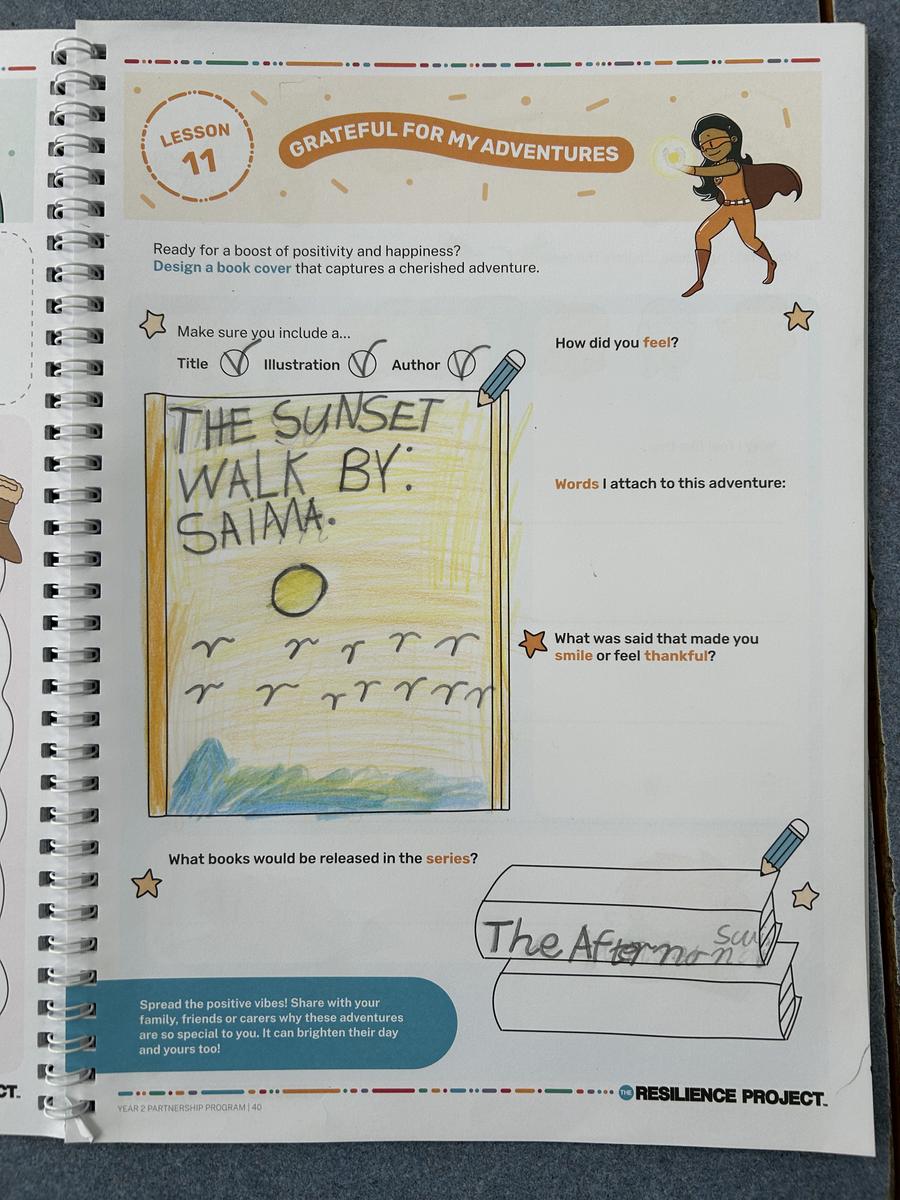 LESSON
11
GRATEFUL FOR MY ADVENTURES
Ready for a boost of positivity and happiness?
Design a book cover that captures a cherished adventure.
Make sure you include a...
Title Illustration Author
THE SUNSET
WALK BY:
SAIMA.
How did you feel?
Words I attach to this adventure:
What was said that made you
smile or feel thankful?
What books would be released in the series?
The Afternon
Spread the positive vibes! Share with your
family, friends or carers why these adventures
are so special to you. It can brighten their day
and yours too!
CT.
THE RESILIENCE PROJECT
YEAR 2 PARTNERSHIP PROGRAM | 40